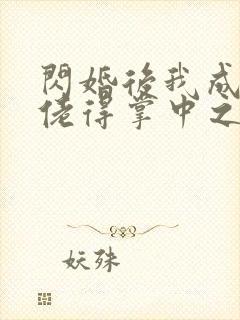 閃婚後我成
佬得掌中之
妖殊